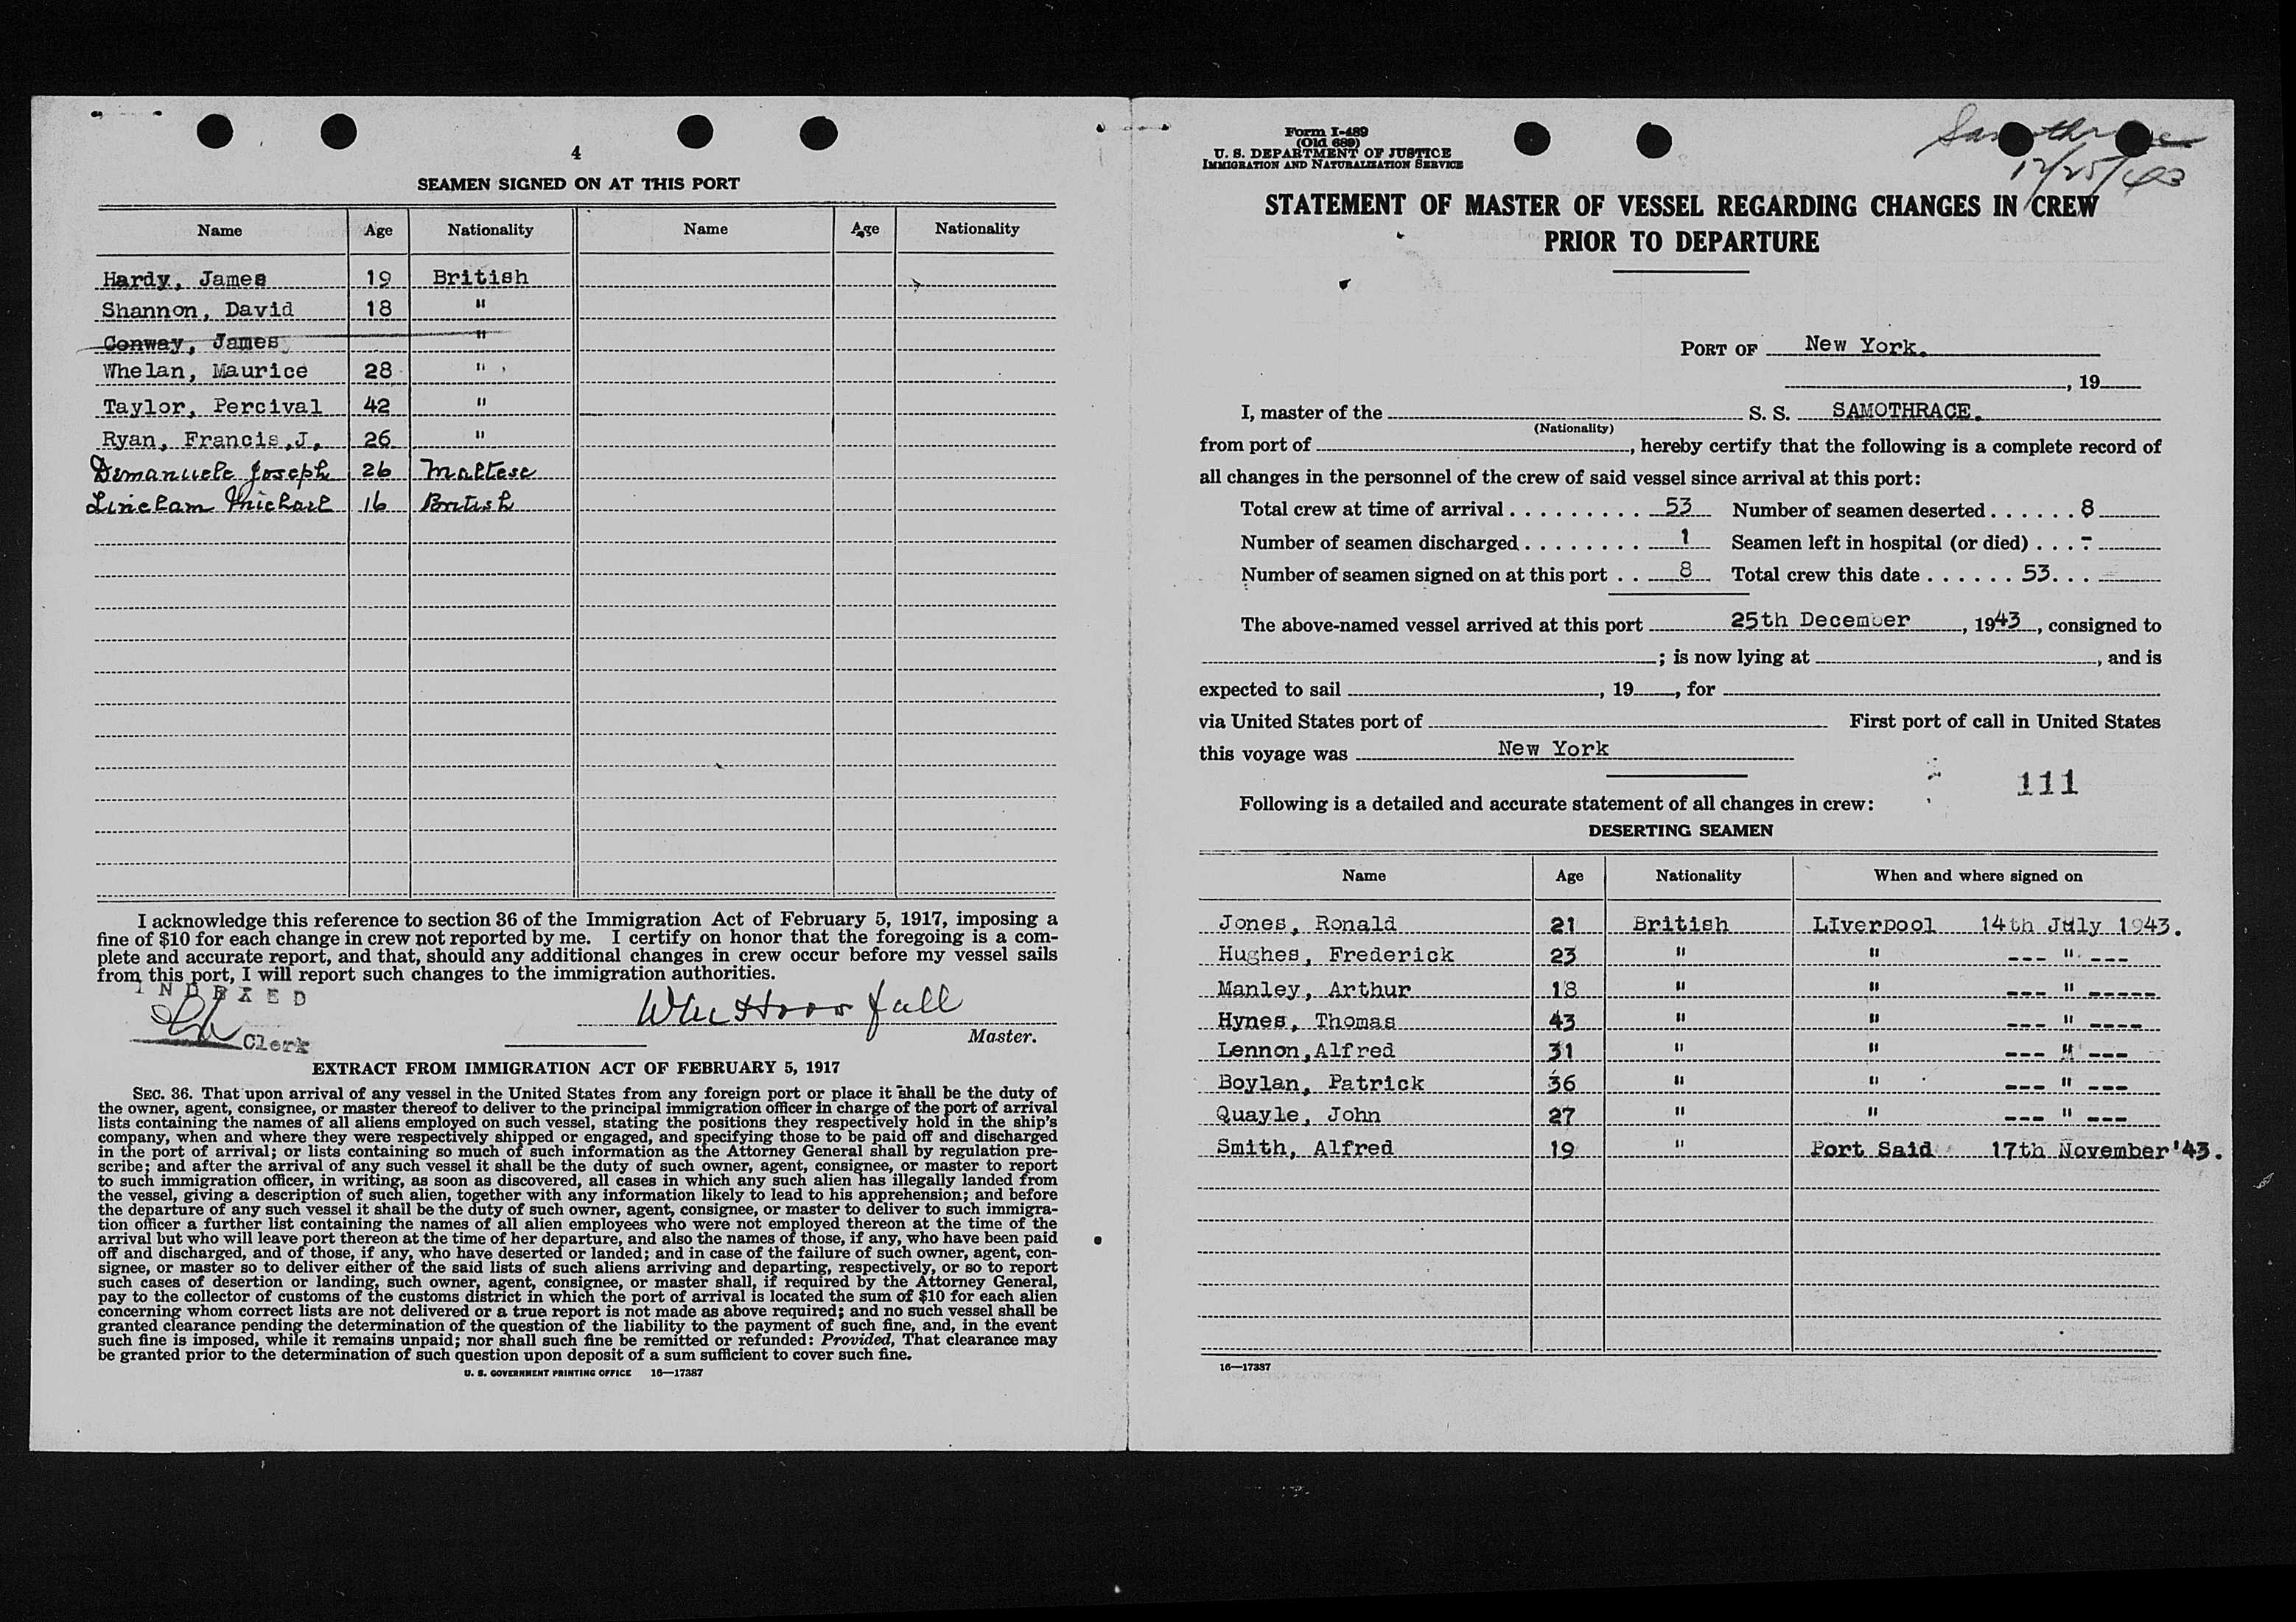 4
SEAMEN SIGNED ON AT THIS PORT
Name Age Nationality Name Age Nationality
Hardy, James 19 British
Shannon, David 18 "
Conway, James "
Whelan, Maurice 28 "
Taylor, Percival 42 "
Ryan, Francis.J. 26 "
Demanuele Joseph 26 Maltese
Lineham Michael 16 British
I acknowledge this reference to section 36 of the Immigration Act of February 5, 1917, imposing a
fine of $10 for each change in crew not reported by me. I certify on honor that the foregoing is a com-
plete and accurate report, and that, should any additional changes in crew occur before my vessel sails
from this port, I will report such changes to the immigration authorities.
INDEXED
Clerk
Master.
EXTRACT FROM IMMIGRATION ACT OF FEBRUARY 5, 1917
SEC. 36. That upon arrival of any vessel in the United States from any foreign port or place it shall be the duty of
the owner, agent, consignee, or master thereof to deliver to the principal immigration officer in charge of the port of arrival
lists containing the names of all aliens employed on such vessel, stating the positions they respectively hold in the ship's
company, when and where they were respectively shipped or engaged, and specifying those to be paid off and discharged
in the port of arrival; or lists containing so much of such information as the Attorney General shall by regulation pre-
scribe; and after the arrival of any such vessel it shall be the duty of such owner, agent, consignee, or master to report
to such immigration officer, in writing, as soon as discovered, all cases in which any such alien has illegally landed from
the vessel, giving a description of such alien, together with any information likely to lead to his apprehension; and before
the departure of any such vessel it shall be the duty of such owner, agent, consignee, or master to deliver to such immigra-
tion officer a further list containing the names of all alien employees who were not employed thereon at the time of the
arrival but who will leave port thereon at the time of her departure, and also the names of those, if any, who have been paid
off and discharged, and of those, if any, who have deserted or landed; and in case of the failure of such owner, agent, con-
signee, or master so to deliver either of the said lists of such aliens arriving and departing, respectively, or so to report
such cases of desertion or landing, such owner, agent, consignee, or master shall, if required by the Attorney General,
pay to the collector of customs of the customs district in which the port of arrival is located the sum of $10 for each alien
concerning whom correct lists are not delivered or a true report is not made as above required; and no such vessel shall be
granted clearance pending the determination of the question of the liability to the payment of such fine, and, in the event
such fine is imposed, while it remains unpaid; nor shall such fine be remitted or refunded: Provided, That clearance may
be granted prior to the determination of such question upon deposit of a sum sufficient to cover such fine.
U. S. GOVERNMENT PRINTING OFFICE 16—17387
Form I-489
(Old 689)
U. S. DEPARTMENT OF JUSTICE
IMMIGRATION AND NATURALIZATION SERVICE
Samothrace
12/25/43
STATEMENT OF MASTER OF VESSEL REGARDING CHANGES IN CREW
PRIOR TO DEPARTURE
PORT OF New York.
, 19
I, master of the S. S. SAMOTHRACE.
(Nationality)
from port of , hereby certify that the following is a complete record of
all changes in the personnel of the crew of said vessel since arrival at this port:
Total crew at time of arrival . . . . . . . . . . 53 Number of seamen deserted . . . . . . 8
Number of seamen discharged . . . . . . . . 1 Seamen left in hospital (or died) . . . -
Number of seamen signed on at this port . . 8 Total crew this date . . . . . . 53. . .
The above-named vessel arrived at this port 25th December , 1943 , consigned to
; is now lying at , and is
expected to sail , 19 , for
via United States port of First port of call in United States
this voyage was New York
111
Following is a detailed and accurate statement of all changes in crew:
DESERTING SEAMEN
Name Age Nationality When and where signed on
Jones, Ronald 21 British LIverpool 14th July 1943.
Hughes, Frederick 23 " " --- " ---
Manley, Arthur 18 " " --- " -----
Hynes, Thomas 43 " " --- " ----
Lennon,Alfred 31 " " --- " ---
Boylan, Patrick 36 " " --- " ---
Quayle, John 27 " " --- " ---
Smith, Alfred 19 " Port Said 17th November'43.
16—17387